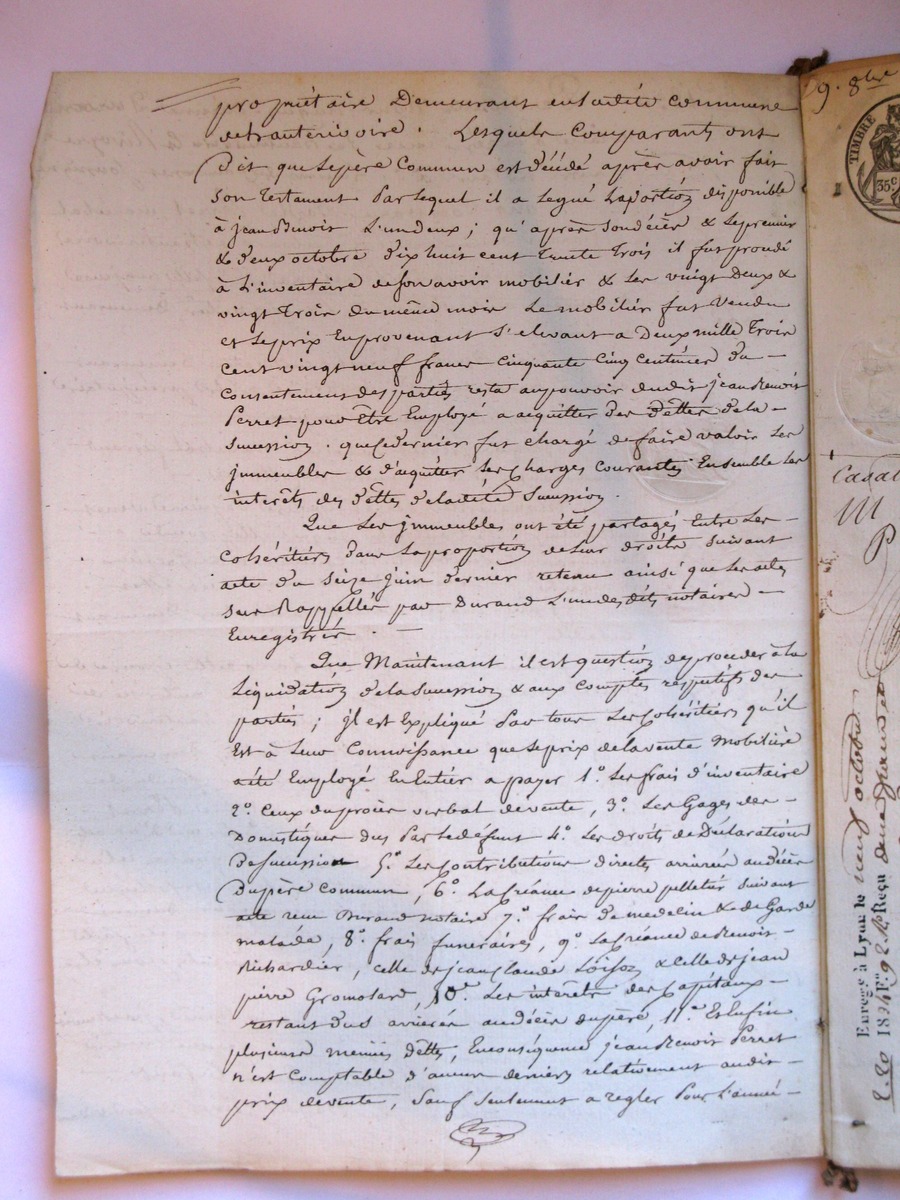 propriétaire Demeurant en ladité commune
de frantenivoire. Lesquels comparants ont
Dit que le père Commun est décédé après avoir fait
son testament Par lequel il a legué la portion disponible
à jean Benoit L'un deux ; qu'après son décès & le premier
& deux octobre dix huit cent trente trois il fut procédé
à L'inventaire de son avoir mobilier & les vingt Deux &
vingt trois du même mois Le mobilier fut vendu
et le prix En provenant s'elevant a Deux mille trois
cent vingt neuf francs cinquante cinq centimes du
consentement des parties resta au pouvoir dudit jean Benoit
Perret pour être Employé a acquitter des dettes de la
succession. que ce dernier fut chargé de faire valoir les
immeubles & d'acquitter les charges courantes Ensemble les
intérêts des dettes de ladité succession.
Que les immeubles ont été partagés Entre les
cohéritiers dans la proportion de leur droits suivant
acte du seize juin dernier retenu ainsi que les actes
sus Rappellés par Durand L'un desdits notaires
Enregistrés.
Que Maintenant il est question de proceder à la
Liquidation de la succession & aux comptes respectifs des
parties ; il est Expliqué Par tous les cohéritiers qu'il
Est à leur Connoissance que le prix de la vente Mobilière
a été Employé En Entier a payer 1.° les frais d'inventaire
2.° ceux du procès verbal de vente, 3.° Les Gages des
Domestiques dus Par le défunt 4.° les droits de Déclaration
De succession 5.° Les contributions directes arrierées au décès
Du père commun, 6.° La créance de pierre pelletier suivant
acte reçu Durand notaire 7.° frais de medecin & de Garde
malade, 8.° frais funeraires, 9.° la créance de Benoit
Richardier, celle de jean claude Loison & celle de jean
pierre Gromolard, 10.° Les intérêts des Capitaux
restant dus arrierés au décès du père, 11.° Et Enfin
plusieurs menues dettes, En conséquence jean Benoit Perret
n'est comptable d'aucun deniers relativement audit
prix de vente, sauf seulement a regler Pour L'année
9. 8bre
TIMBRE
35 c
Casat
M
P
Enregé à Lyon le neuf octobre
1834 F° 92 R° Reçu deux francs et
2.20